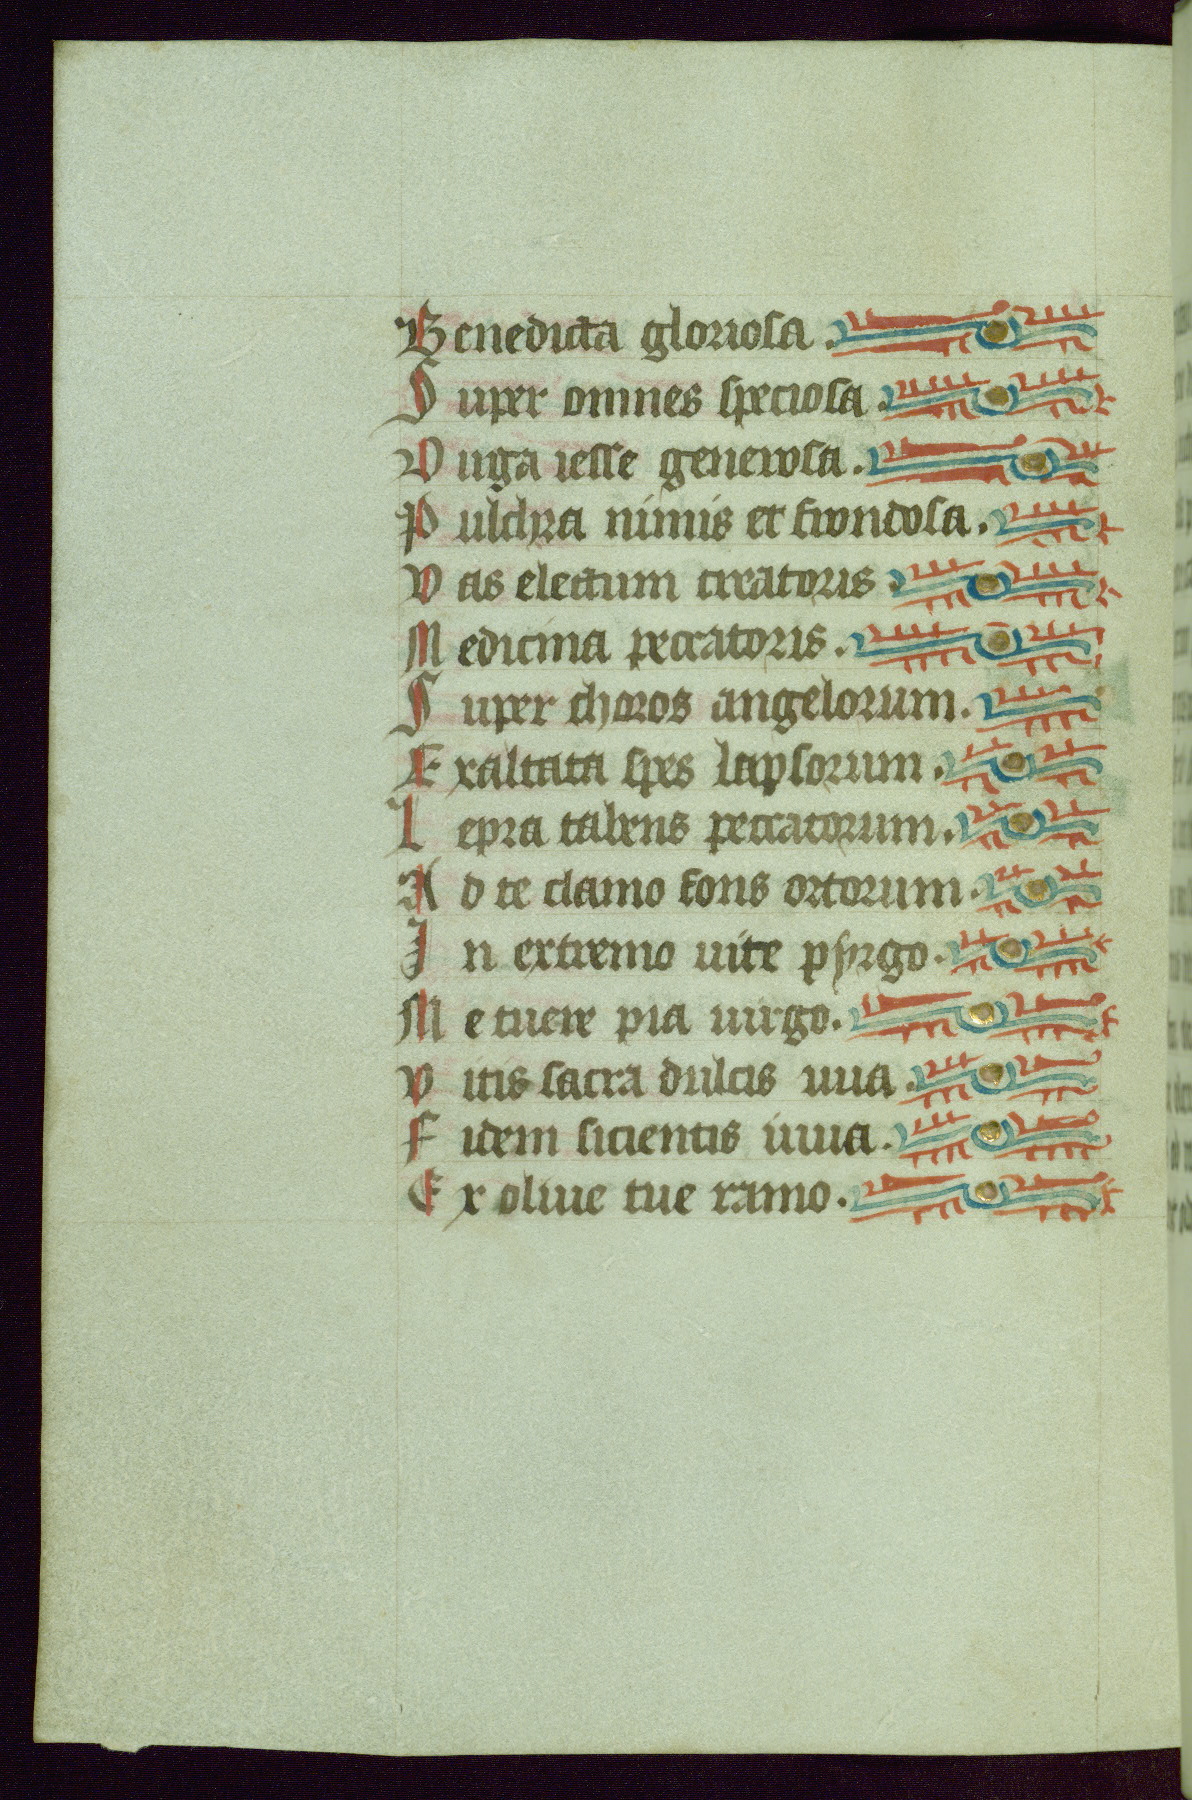 Benedicta gloriosa.
Super omnes speciosa.
Virga iesse generosa.
Pulchra nimis et frondosa.
Vas electum creatoris.
Medicina peccatoris.
Super choros angelorum.
Exaltata spes lapsorum.
Lepra tabens peccatorum.
Ad te clamo fons ortorum.
In extremo uite pyrgo.
Me tuere pia uirgo.
Vitis sacra dulcis uua.
Fidem sicientis iuua.
Ex oliue tue ramo.